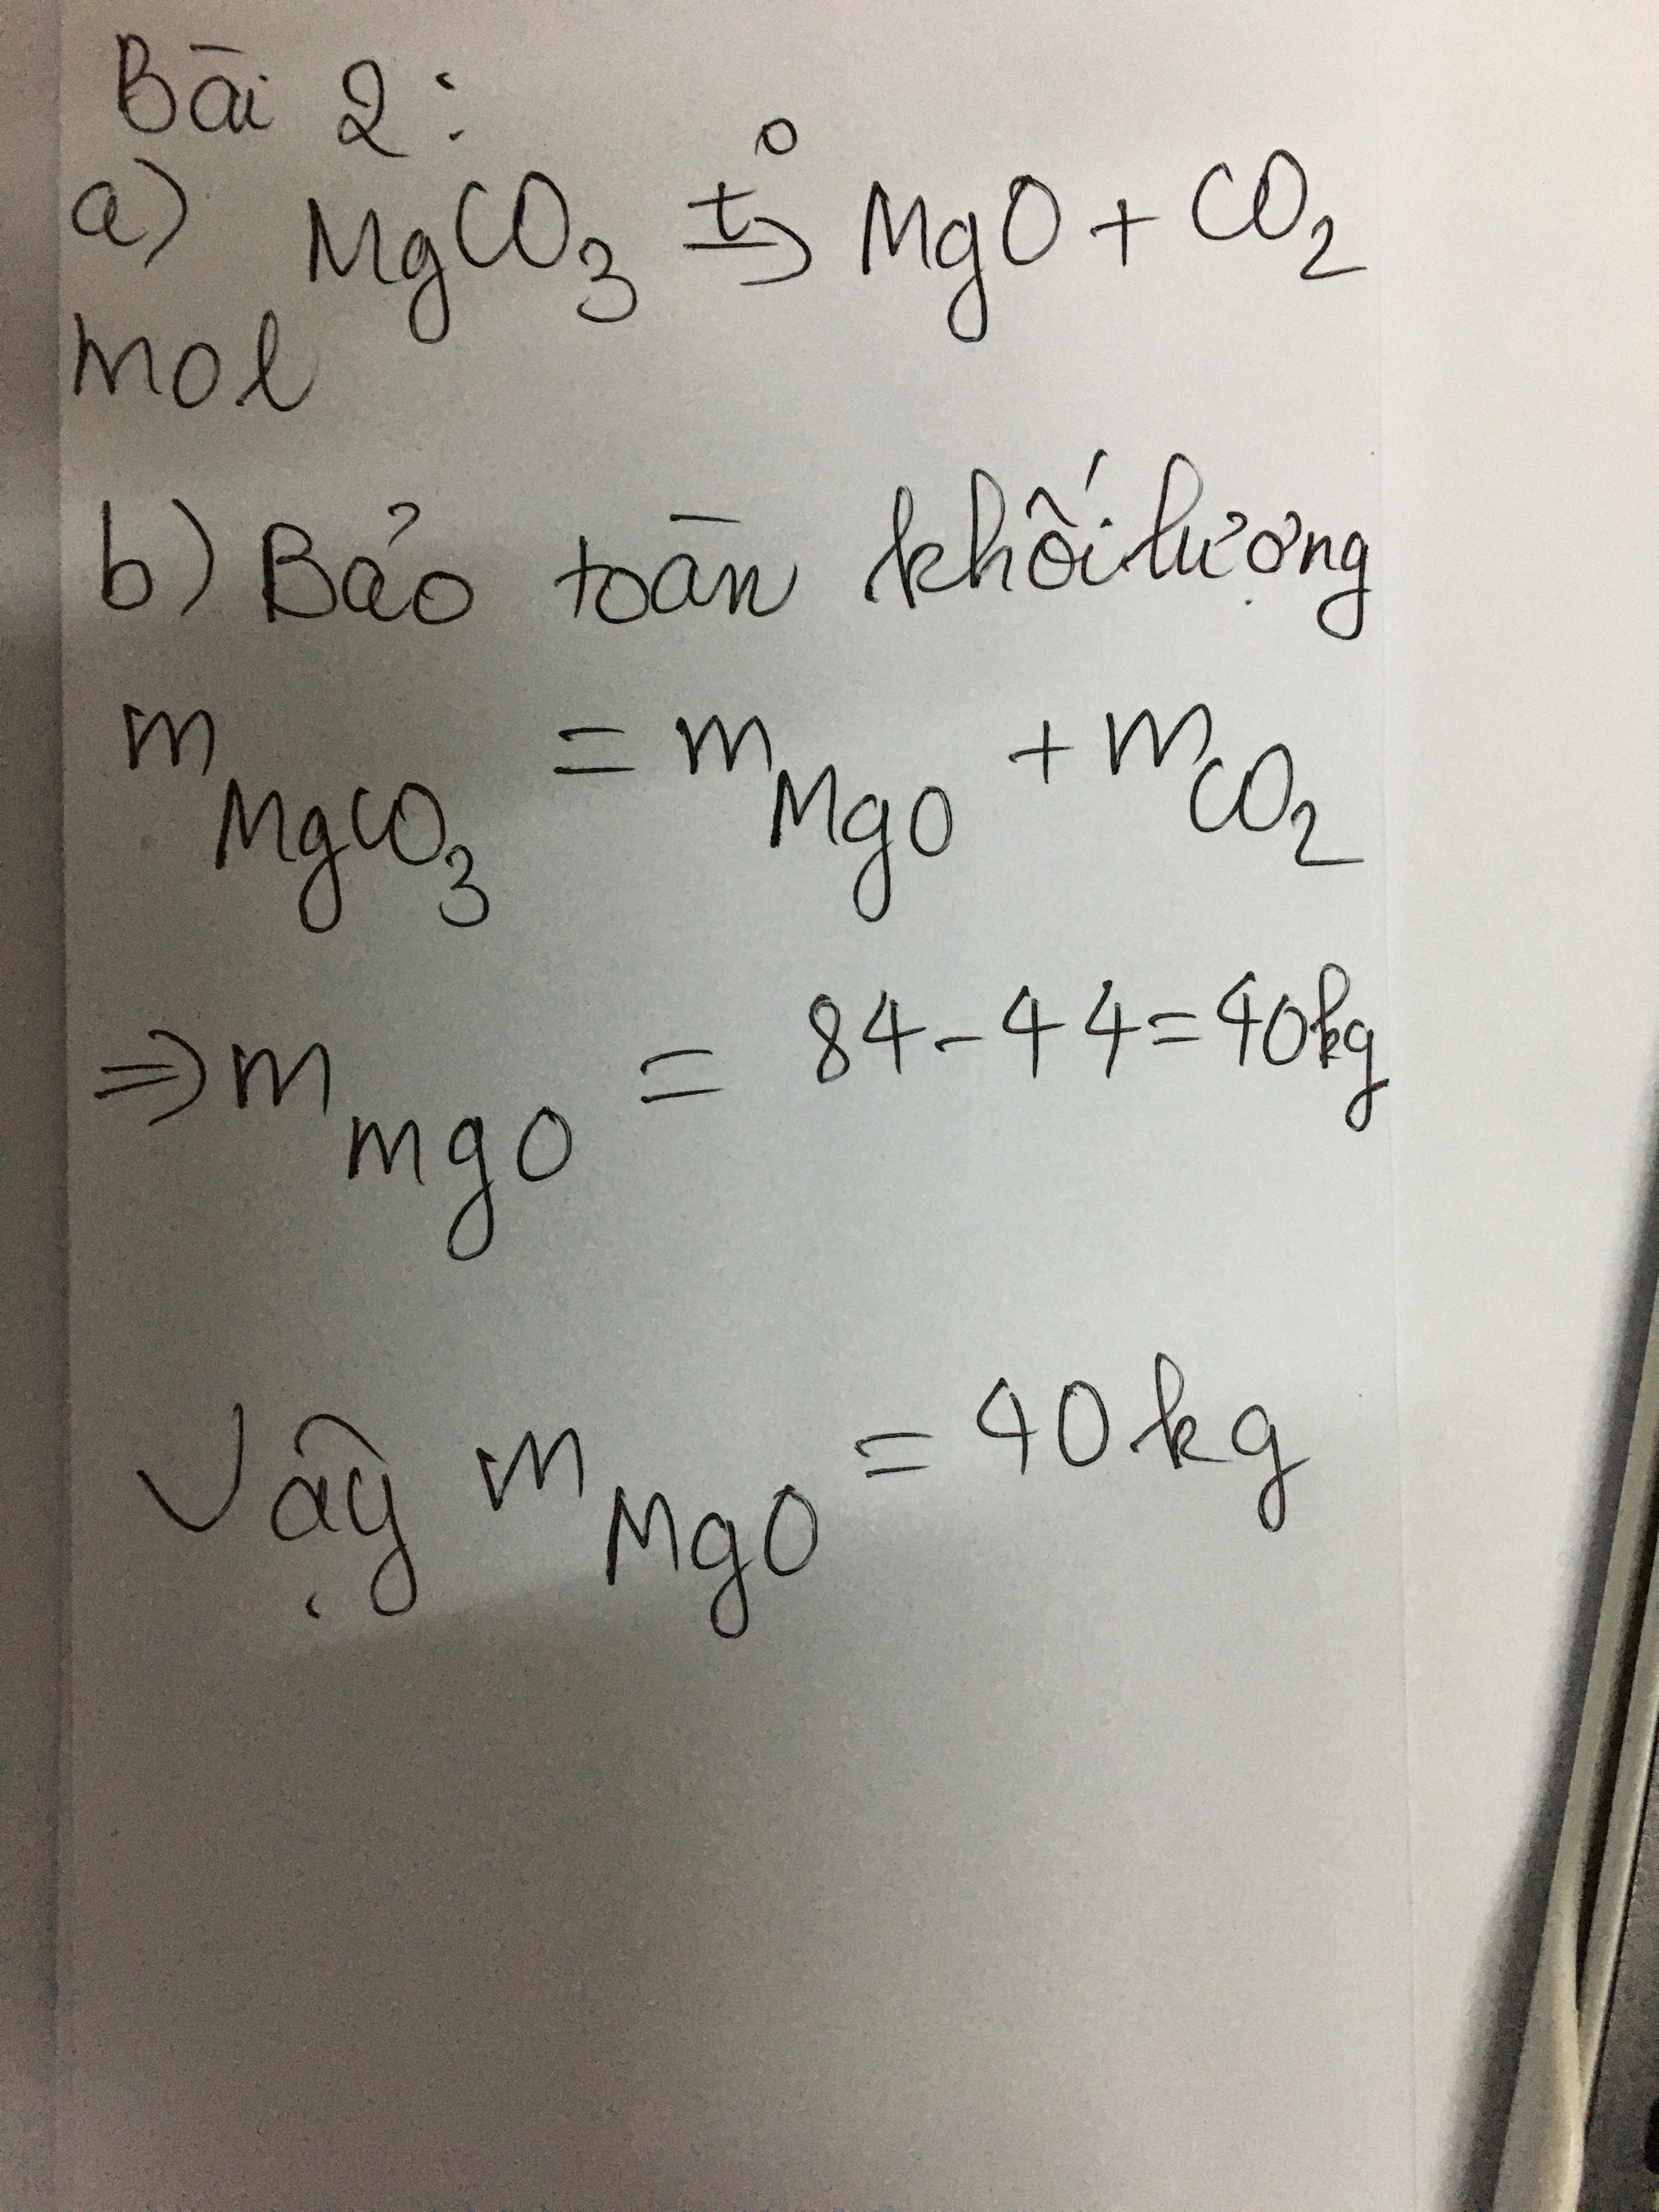 Bài 2:
a) MgCO₃ t° → MgO + CO₂
mol
b) Bảo toàn khối lượng
m MgCO₃ = m MgO + m CO₂
⇒ m mgO = 84 - 44 = 40kg
Vậy m MgO = 40kg